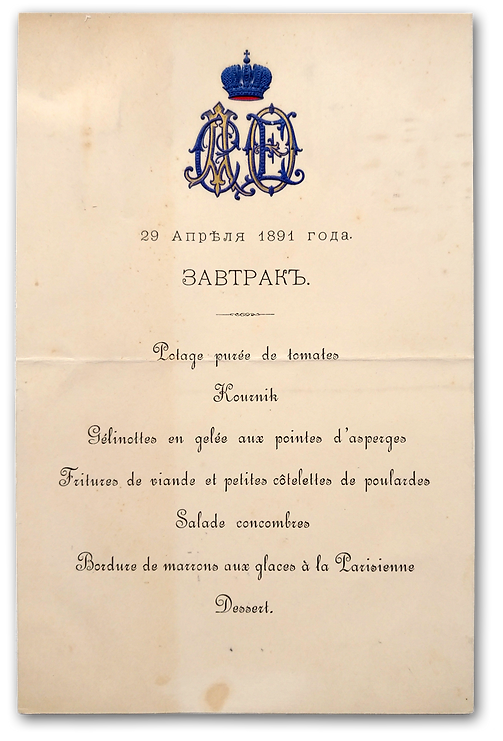 29 Апрѣля 1891 года.
ЗАВТРАКЪ.
Potage purée de tomates
Kournik
Gélinottes en gelée aux pointes d'asperges
Fritures de viande et petites côtelettes de poulardes
Salade concombres
Bordure de marrons aux glaces à la Parisienne
Dessert.